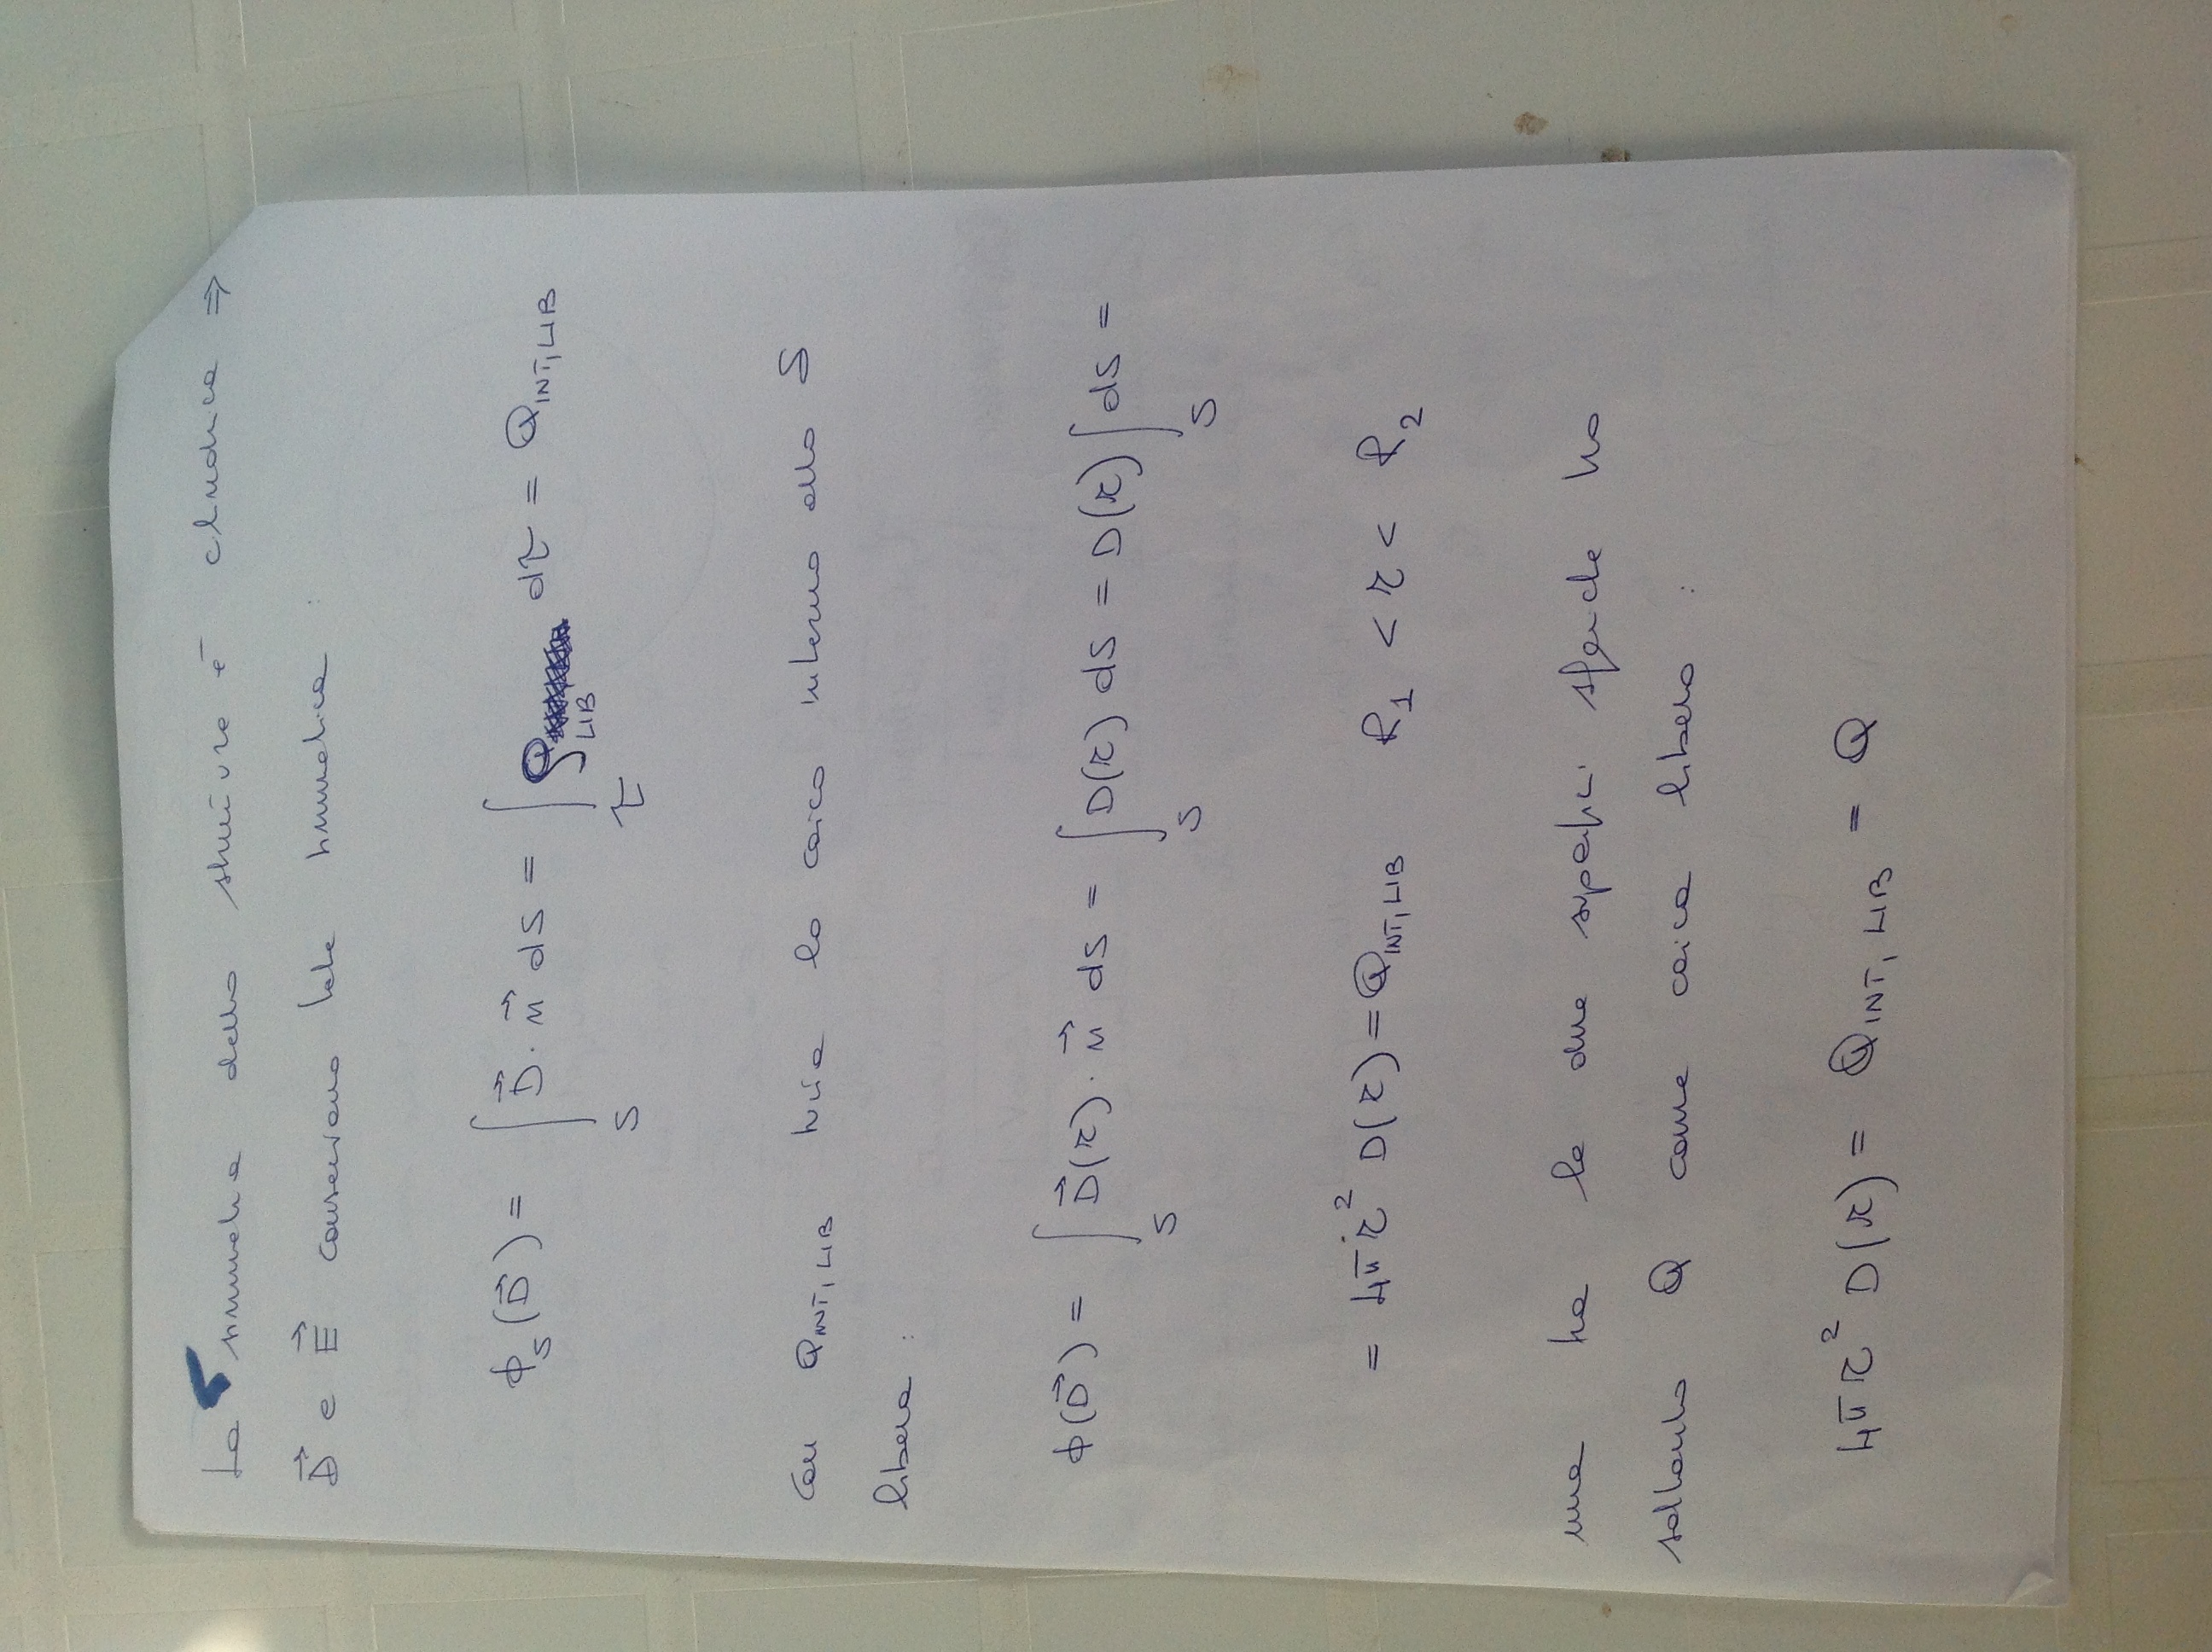 La simmetria della struttura è cilindrica ⇒
D⃗ e E⃗ conservano tale simmetria :
ϕ_S(D⃗) = ∫_S D⃗ · n⃗ dS = ∫_τ ρ_LIB dτ = Q_INT,LIB
con Q_INT,LIB tutta la carica interna alla S
libera :
ϕ(D⃗) = ∫_S D⃗(r) · n⃗ dS = ∫_S D(r) dS = D(r) ∫_S dS =
= 4π r² D(r) = Q_INT,LIB R₁ < r < R₂
ma tra le due superfici sferiche ho
soltanto Q come carica libera :
4π r² D(r) = Q_INT, LIB = Q